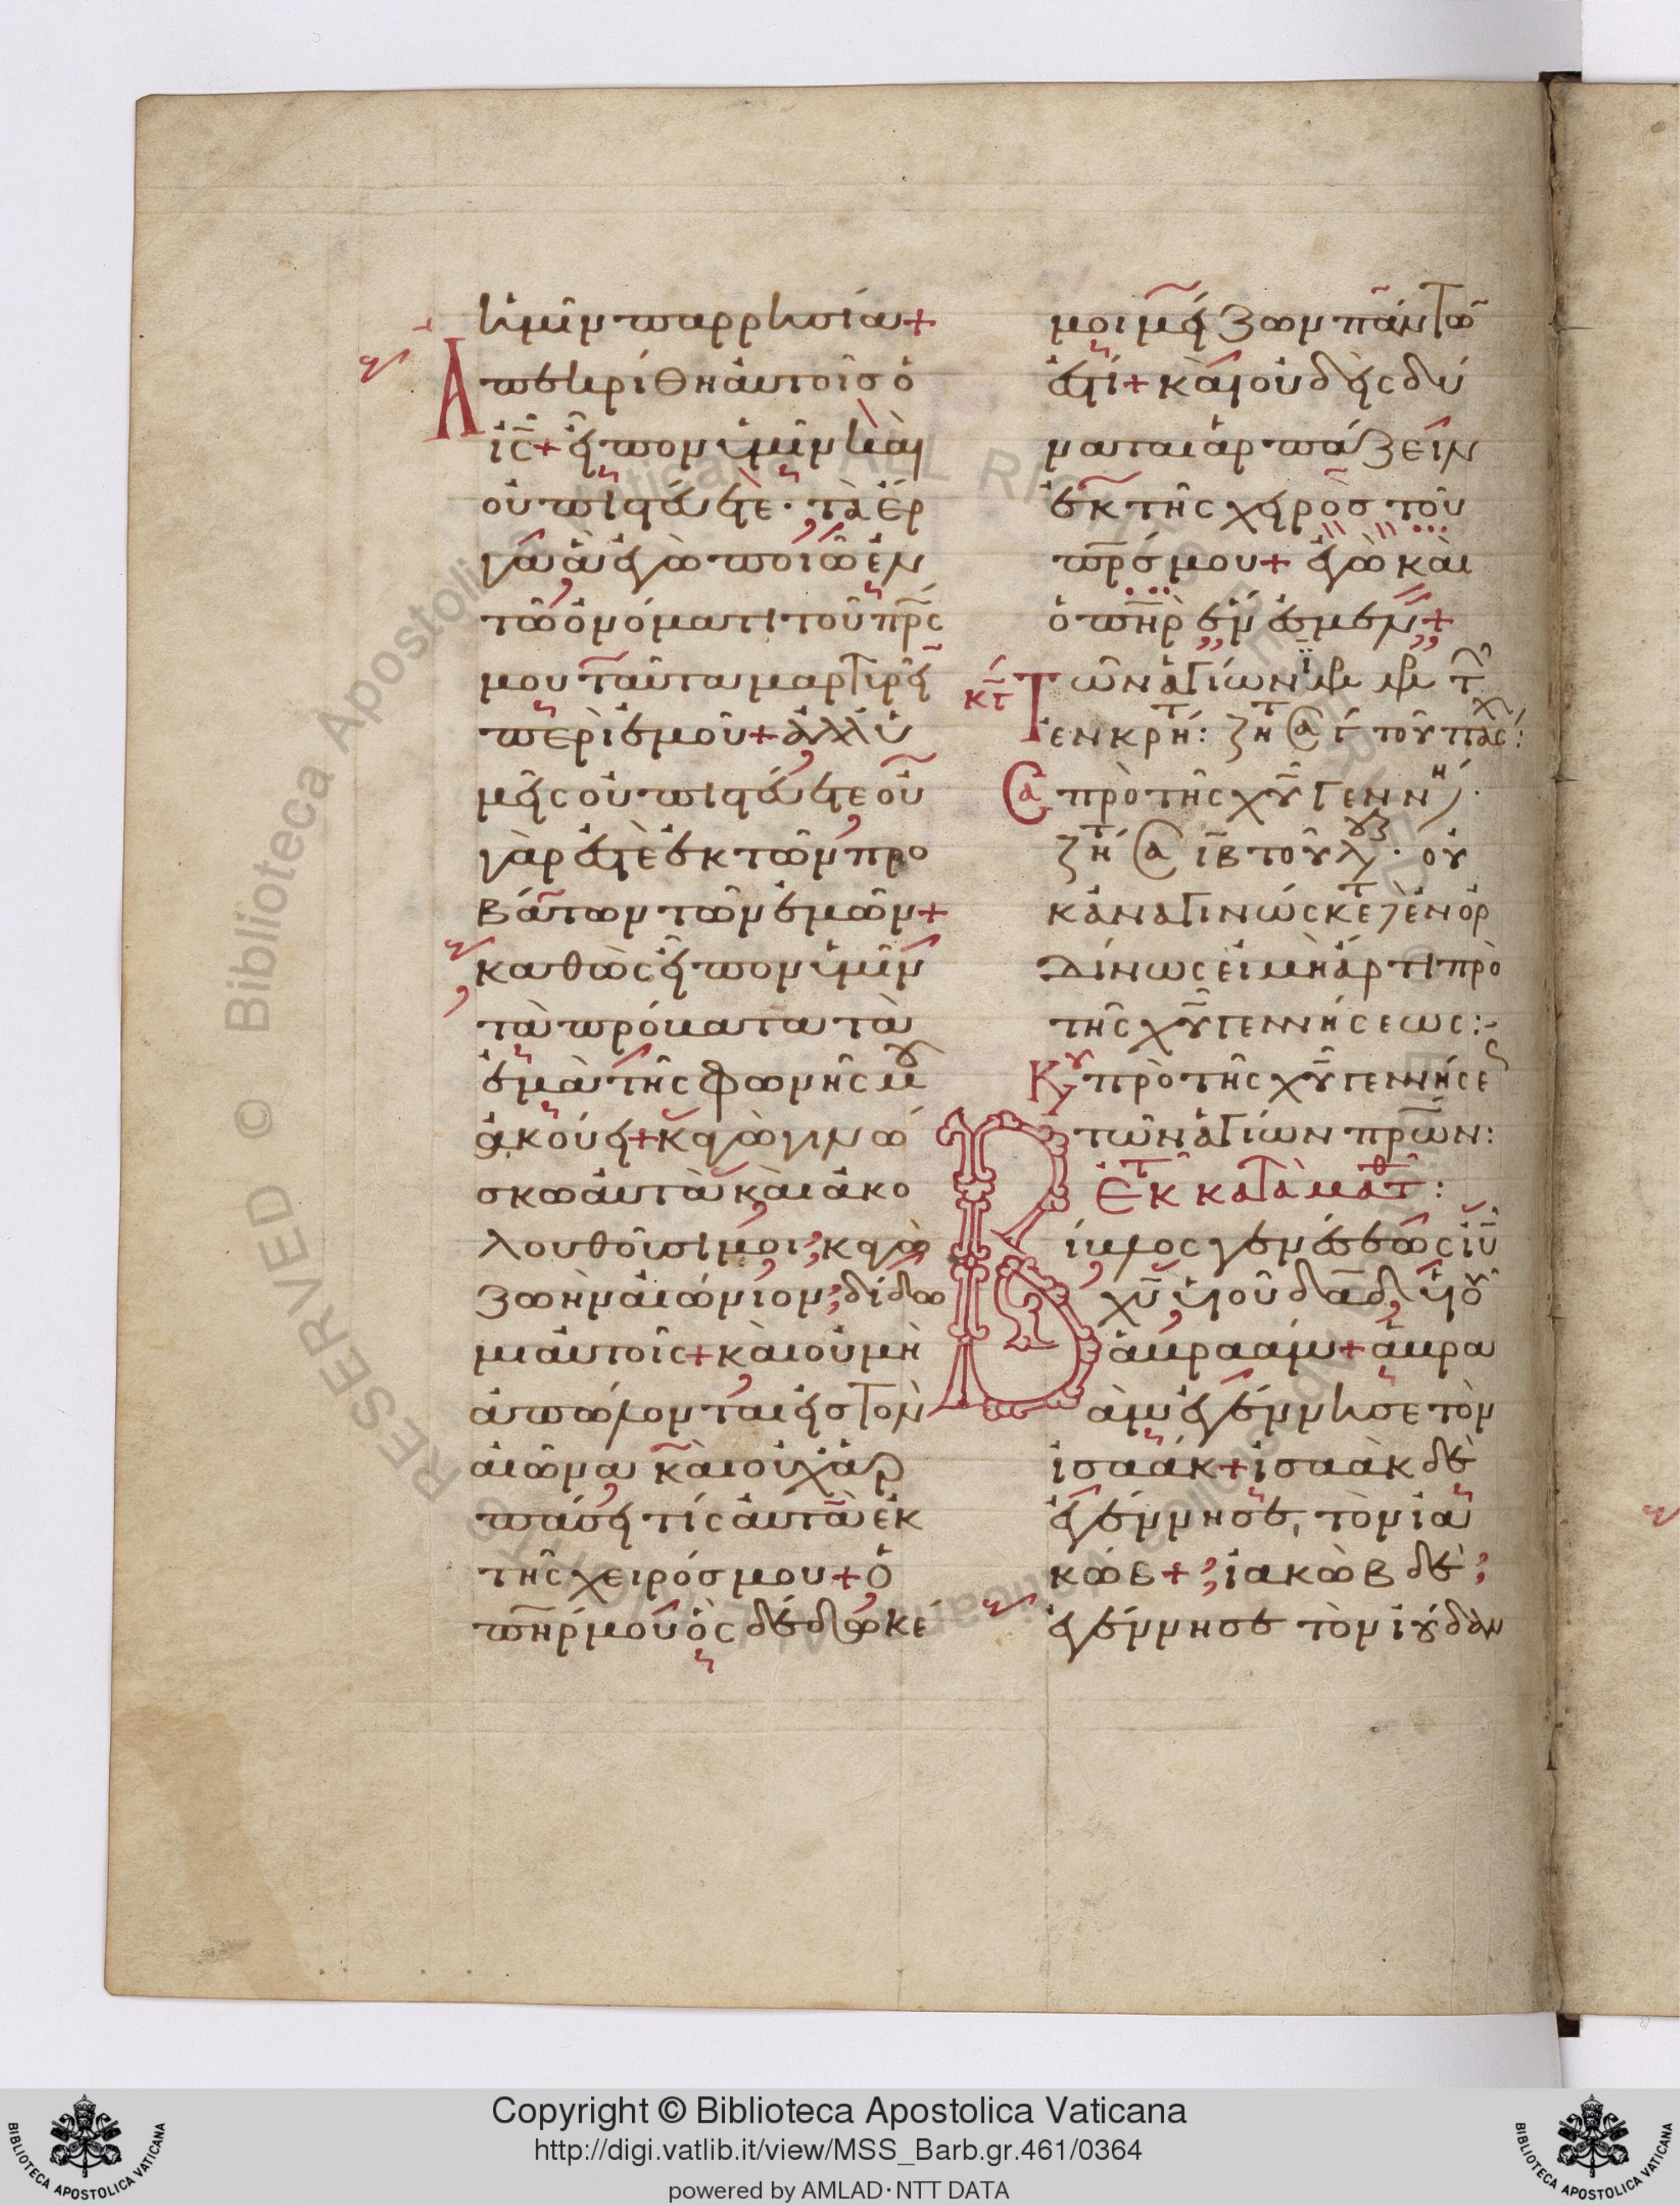 ἡμῖν παρρησία+
Ἀπεκρίθη αὐτοῖς ὁ
ἰς+ εἶπον ὑμῖν καὶ
οὐ πιστεύετε· τὰ ἔρ
γα ἃ ἐγὼ ποιῶ ἐν
τῶ ὀνόματι τοῦ πρς
μου ταῦτα μαρτυρεῖ
περὶ ἐμοῦ+ ἀλλ ὑ
μεῖς οὐ πιστεύετε οὐ
γὰρ ἐστὲ ἐκ τῶν προ
βάτων τῶν ἐμῶν+
καθὼς εἶπον ὑμῖν
τὰ πρόβατα τὰ
ἐμὰ τῆς φωνῆς μου
ἀκούει+ κἀγὼ γινώ
σκω αὐτὰ καὶ ἀκο
λουθοῦσι μοι, κἀγὼ
ζωὴν αἰώνιον, δίδω
μι αὐτοῖς+ καὶ οὐ μὴ
ἀπόλονται εἰς τὸν
αἰῶνα καὶ οὐχ ἁρ
πάσει τίς αὐτὰ ἐκ
τῆς χειρός μου+ ὁ
πηρ μου ὃς δέδωκέ
μοι μείζων πάντων
ἐστί+ καὶ οὐδεὶς δύ
ναται ἁρπάζειν
ἐκ τῆς χειρὸς τοῦ
πρς μου+ ἐγὼ καὶ
ὁ πηρ ἕν ἐσμεν+
Τῶν ἁγίων
ἐν κρητ: ζητ
πρὸ τῆς χυ γεννη
ζητ ιβ τοῦ λουκ· οὐ
κ ἀναγινώσκετ ἐν ὀρ
δίνως εἰ μὴ ἄρτι πρὸ
τῆς χυ γεννήσεως:-
Κυ πρὸ τῆς χυ γεννήσε
τῶν ἁγίων πρων:
Ἐκ τ κατὰ ματθ:
Βίβλος γενέσεως ιυ
χυ υἱοῦ δαδ υἱοῦ
ἀβραάμ+ ἀβρα
ὰμ ἐγέννησε τὸν
ἰσαάκ+ ἰσαὰκ δὲ
ἐγέννησε, τὸν ἰα
κώβ+, ἰακὼβ δὲ,
ἐγέννησε τὸν ἰούδαν
Copyright © Biblioteca Apostolica Vaticana
http://digi.vatlib.it/view/MSS_Barb.gr.461/0364
powered by AMLAD·NTT DATA
BIBLIOTECA APOSTOLICA VATICANA
BIBLIOTECA APOSTOLICA VATICANA